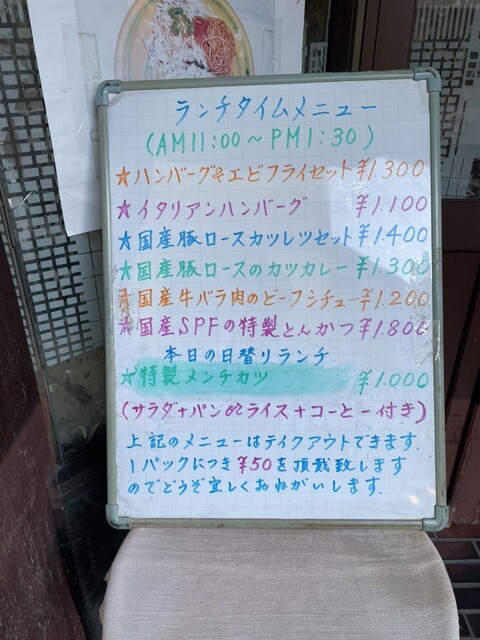 ランチタイムメニュー
(AM11:00～PM1:30)
★ハンバーグ&エビフライセット ¥1.300
★イタリアンハンバーグ ¥1.100
★国産豚ロースカツレツセット ¥1.400
★国産豚ロースのカツカレー ¥1.300
★国産牛バラ肉のビーフシチュー ¥1.200
★国産SPFの特製とんかつ ¥1.800
本日の日替りランチ
★特製メンチカツ ¥1.000
(サラダ+パンorライス+コーヒー付き)
上記のメニューはテイクアウトできます.
1パックにつき¥50を頂戴致します
のでどうぞ宜しくおねがいします.